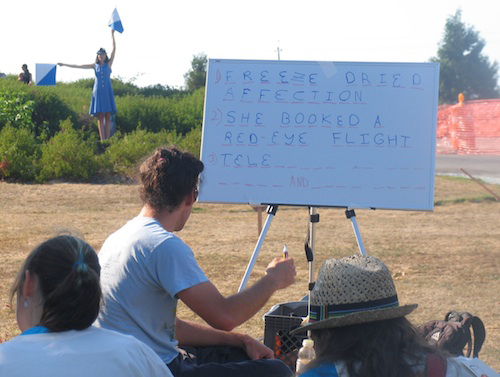 1) FREEZE DRIED
AFFECTION
2) SHE BOOKED A
RED-EYE FLIGHT
3) TELE
AND